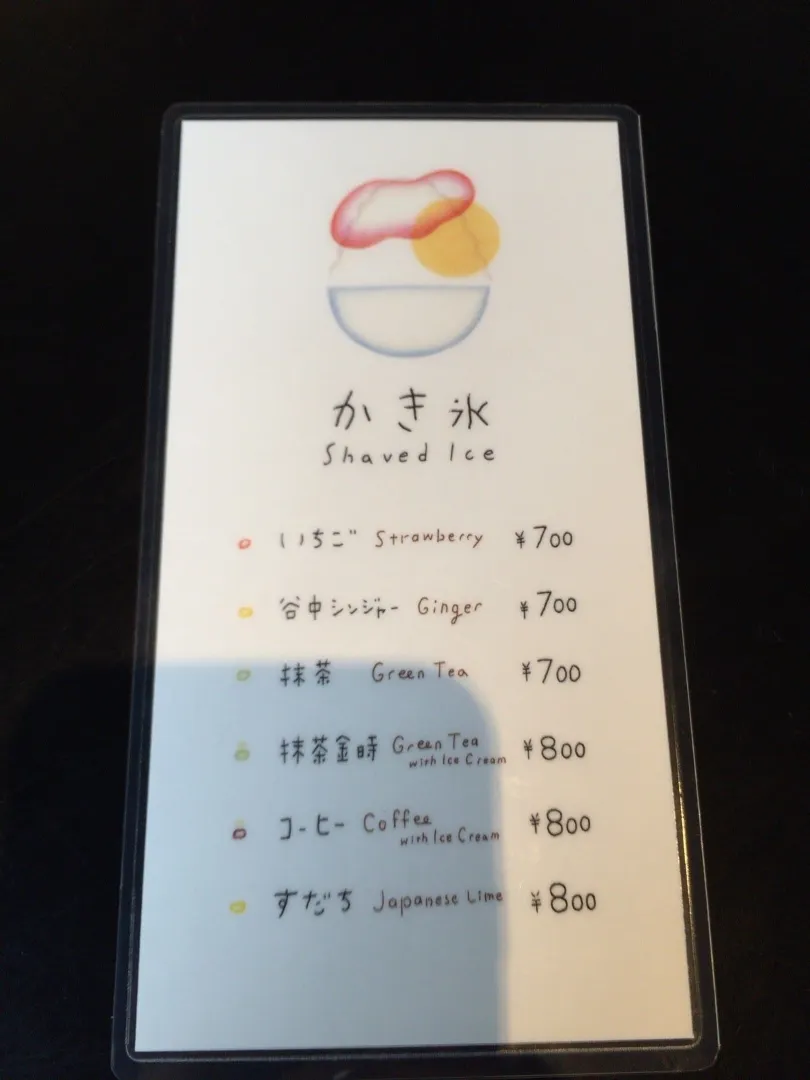 かき氷
Shaved Ice
いちご Strawberry ¥700
谷中シンジャー Ginger ¥700
抹茶 Green Tea ¥700
抹茶金時 Green Tea with Ice Cream ¥800
コーヒー Coffee with Ice Cream ¥800
すだち Japanese Lime ¥800